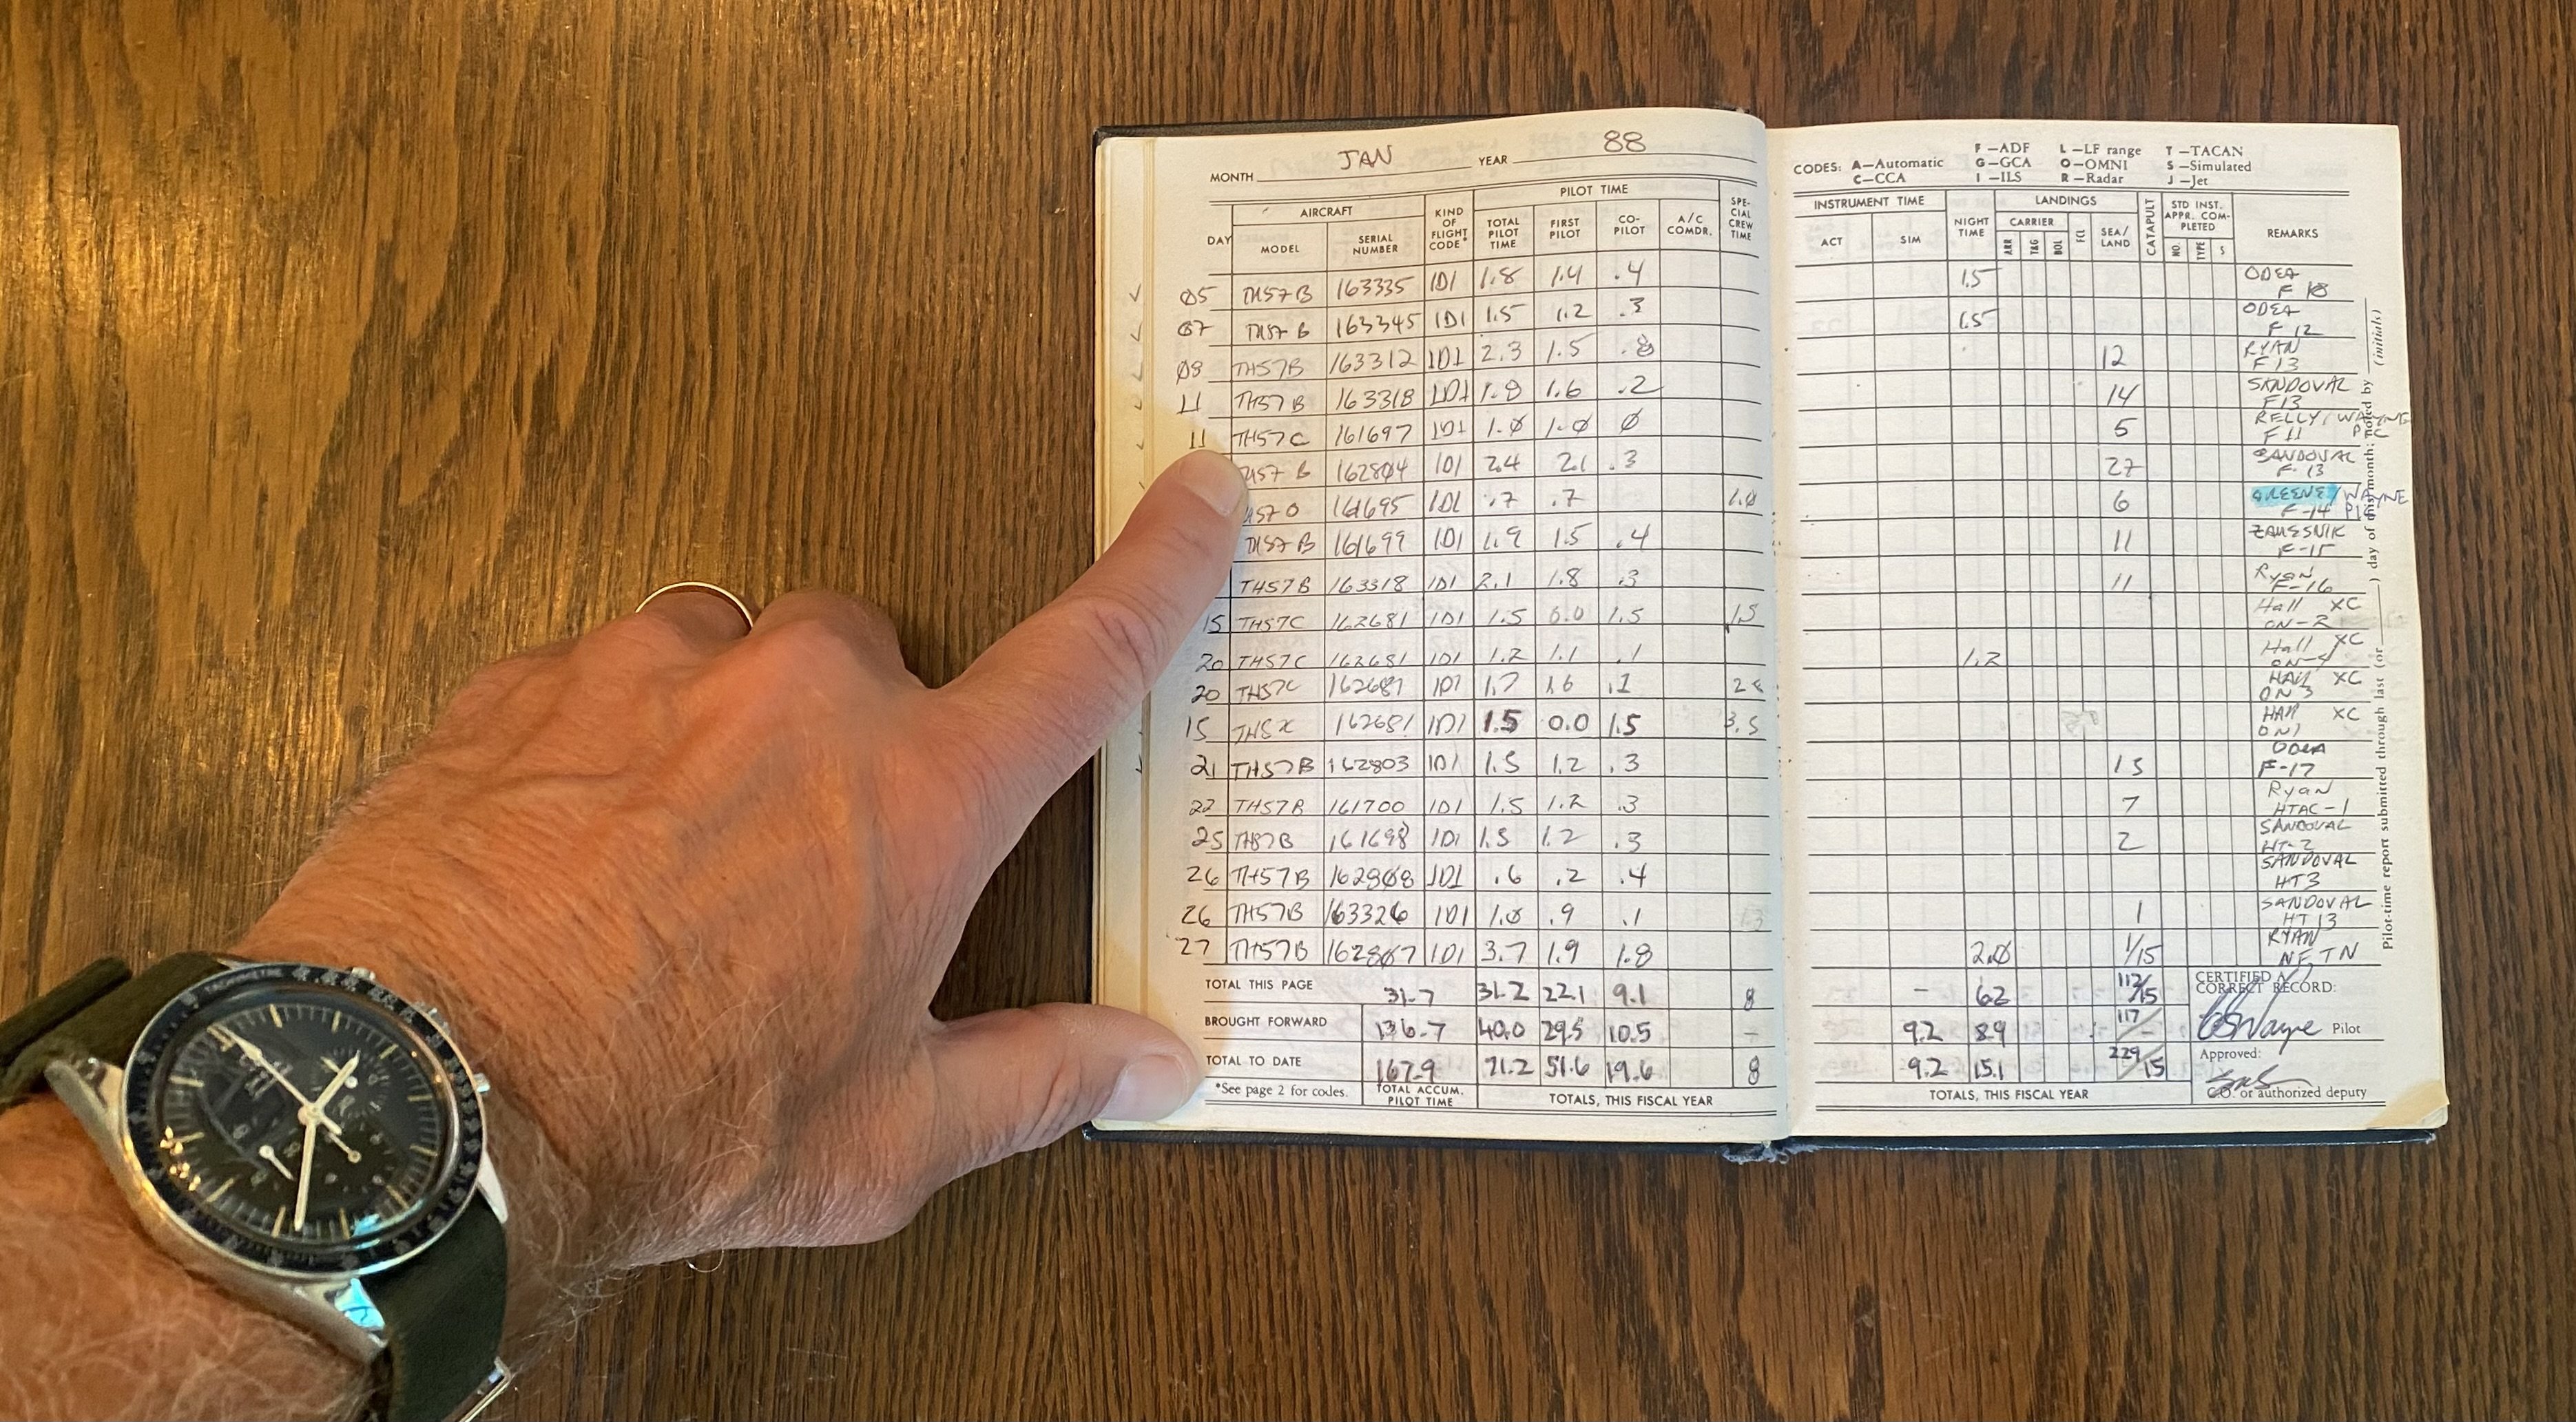 MONTH JAN YEAR 88
DAY AIRCRAFT KIND OF FLIGHT CODE* PILOT TIME SPE-CIAL CREW TIME
MODEL SERIAL NUMBER TOTAL PILOT TIME FIRST PILOT CO-PILOT A/C COMDR.
Ø5 TH57B 163335 1D1 1.8 1.4 .4
Ø7 TH57B 163345 1D1 1.5 1.2 .3
Ø8 TH57B 163312 1D1 2.3 1.5 .8
11 TH57B 163318 1D1 1.8 1.6 .2
11 TH57C 161697 1D1 1.Ø 1.Ø Ø
H57 B 1628Ø4 1D1 2.4 2.1 .3
161695 1D1 .7 .7 1.Ø
TH57B 161699 1D1 1.9 1.5 .4
TH57B 163318 1D1 2.1 1.8 .3
15 TH57C 162681 1D1 1.5 0.0 1.5 1.5
20 TH57C 162681 1D1 1.2 1.1 .1
20 TH57C 162681 1D1 1.7 1.6 .1
15 162681 1D1 1.5 0.0 1.5 3.5
21 TH57B 162803 1D1 1.5 1.2 .3
22 TH57B 161700 1D1 1.5 1.2 .3
25 TH57B 161698 1D1 1.5 1.2 .3
26 TH57B 1628Ø8 1D1 .6 .2 .4
26 TH57B 163326 1D1 1.Ø .9 .1
27 TH57B 1628Ø7 1D1 3.7 1.9 1.8
TOTAL THIS PAGE 31.7 31.2 22.1 9.1 8
BROUGHT FORWARD 136.7 40.0 29.5 10.5 –
TOTAL TO DATE 167.9 71.2 51.6 19.6 8
*See page 2 for codes. TOTAL ACCUM. PILOT TIME TOTALS, THIS FISCAL YEAR
CODES: A—Automatic F—ADF L—LF range T—TACAN
C—CCA G—GCA O—OMNI S—Simulated
I—ILS R—Radar J—Jet
INSTRUMENT TIME NIGHT TIME LANDINGS CATAPULT STD INST. APPR. COM-PLETED REMARKS
ACT SIM CARRIER ARR T&G BOL FCL SEA/LAND NO. TYPE S
1.5 ODEA F 18
1.5 ODEA F 12
12 RYAN F13
14 SANDOVAL F13
5 KELLY/WAYNE F11
27 SANDOVAL F-13
6 GREENE/WAYNE F-14
11 F-15
11 Ryan F-16
Hall XC ON-2
1.2 Hall XC ON-4
Hall XC ON3
Hall XC ON1
15 ODEA F-17
7 Ryan HTAC-1
2 SANDOVAL HT-2
SANDOVAL HT3
1 SANDOVAL HT13
2.Ø 1/15 RYAN
– 6.2 112/15 CERTIFIED A CORRECT RECORD:
9.2 8.9 117/– Wayne Pilot
9.2 15.1 229/15 Approved:
TOTALS, THIS FISCAL YEAR C.O. or authorized deputy
Pilot-time report submitted through last (or ) day of this month; noted by (initials)